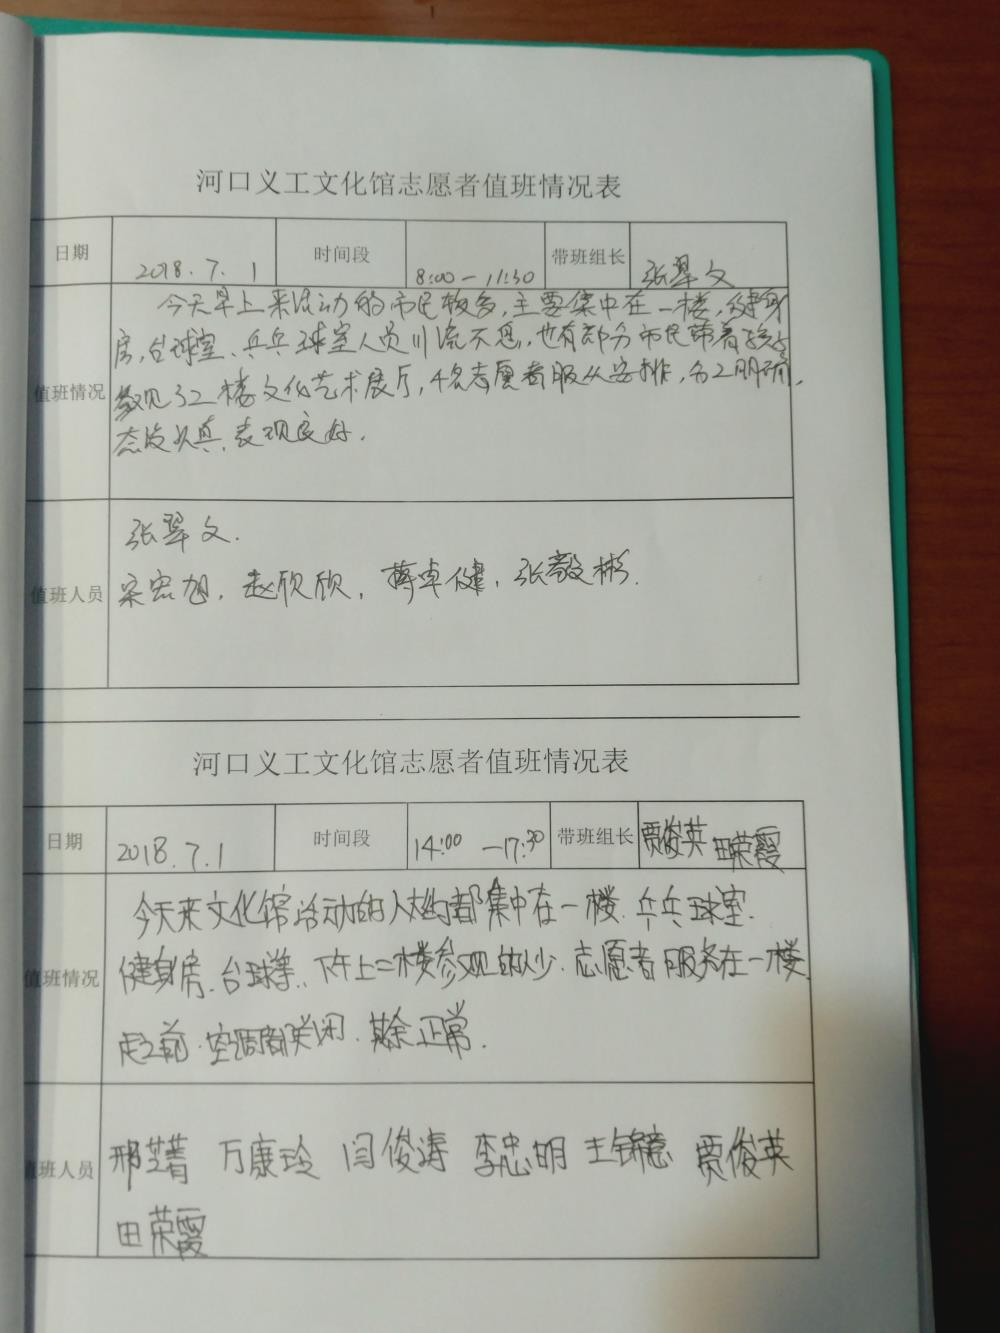 河口义工文化馆志愿者值班情况表
日期 2018.7.1 时间段 8:00-11:30 带班组长 张翠文
今天早上来活动的市民较多,主要集中在一楼,健身
房,台球室、乒乓球室人员川流不息,也有部分市民带着孩子
值班情况 参观了二楼文化艺术展厅,4名志愿者服从安排,分工明确,
态度认真,表现良好.
张翠文.
值班人员 宋宏旭,赵欣欣,蒋卓健,张毅彬.
河口义工文化馆志愿者值班情况表
日期 2018.7.1 时间段 14:00-17:30 带班组长 贾俊英 田荣霞
今天来文化馆活动的人大约都集中在一楼.乒乓球室.
值班情况 健身房.台球等..下午上二楼参观的人少.志愿者服务在一楼.
走之前.空调都关闭.其余正常.
值班人员 邢芝菁 万康玲 闫俊涛 李忠明 王锦意 贾俊英
田荣霞